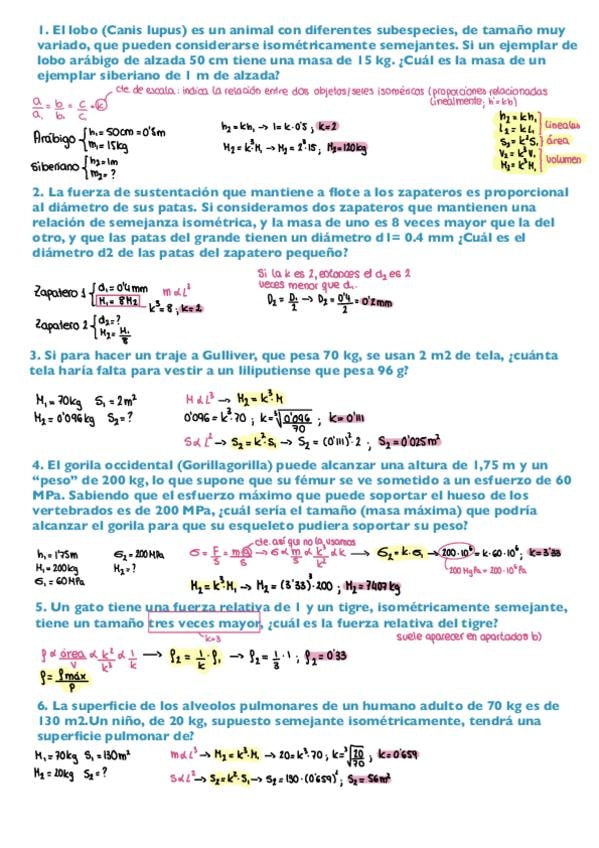 1. El lobo (Canis lupus) es un animal con diferentes subespecies, de tamaño muy
variado, que pueden considerarse isométricamente semejantes. Si un ejemplar de
lobo arábigo de alzada 50 cm tiene una masa de 15 kg. ¿Cuál es la masa de un
ejemplar siberiano de 1 m de alzada?
cte. de escala: indica la relación entre dos objetos/seres isoméricos (proporciones relacionadas
linealmente; h'=kh)
a/a₁ = b/b₁ = c/c₁ = k
Arábigo { h₁ = 50cm = 0'5m
m₁ = 15kg
Siberiano { h₂ = 1m
m₂ = ?
h₂ = kh₁ → 1 = k·0'5 ; k=2
M₂ = k³M₁ → M₂ = 2³·15 ; M₂=120kg
h₂ = kh₁
l₂ = kl₁ } lineales
S₂ = k²S₁ } área
V₂ = k³V₁
M₂ = k³M₁ } volumen
2. La fuerza de sustentación que mantiene a flote a los zapateros es proporcional
al diámetro de sus patas. Si consideramos dos zapateros que mantienen una
relación de semejanza isométrica, y la masa de uno es 8 veces mayor que la del
otro, y que las patas del grande tienen un diámetro d1= 0.4 mm ¿Cuál es el
diámetro d2 de las patas del zapatero pequeño?
Zapatero 1 { d₁ = 0'4mm m α L³
M₁ = 8M₂ k³=8 ; k=2
Zapatero 2 { d₂ = ?
M₂ = M₁/8
Si la k es 2, entonces el d₂ es 2
veces menor que d₁.
D₂ = D₁/2 → D₂ = 0'4/2 = 0'2mm
3. Si para hacer un traje a Gulliver, que pesa 70 kg, se usan 2 m2 de tela, ¿cuánta
tela haría falta para vestir a un liliputiense que pesa 96 g?
M₁ = 70kg S₁ = 2m² M α L³ → M₂ = k³·M
M₂ = 0'096kg S₂ = ? 0'096 = k³·70 ; k = ∛(0'096/70) ; k=0'111
S α L² → S₂ = k²·S₁ → S₂ = (0'111)²·2 ; S₂=0'025m²
4. El gorila occidental (Gorillagorilla) puede alcanzar una altura de 1,75 m y un
“peso” de 200 kg, lo que supone que su fémur se ve sometido a un esfuerzo de 60
MPa. Sabiendo que el esfuerzo máximo que puede soportar el hueso de los
vertebrados es de 200 MPa, ¿cuál sería el tamaño (masa máxima) que podría
alcanzar el gorila para que su esqueleto pudiera soportar su peso?
cte. así que no la usamos
h₁ = 1'75m σ₂ = 200MPa σ = F/S = mg/S → σ α m/S α k³/k² α k → σ₂ = k·σ₁ → 200·10⁶ = k·60·10⁶ ; k=3'33
M₁ = 200kg M₂ = ?
σ₁ = 60MPa
200 MgPa = 200·10⁶ Pa
M₂ = k³·M₁ → M₂ = (3'33)³·200 ; M₂=7407kg
5. Un gato tiene una fuerza relativa de 1 y un tigre, isométricamente semejante,
tiene un tamaño tres veces mayor, ¿cuál es la fuerza relativa del tigre?
k=3
suele aparecer en apartados b)
ρ α área/V α k²/k³ α 1/k → ρ₂ = 1/k · ρ₁ → ρ₂ = 1/3 · 1 ; ρ₂=0'33
ρ = ρmáx/P
6. La superficie de los alveolos pulmonares de un humano adulto de 70 kg es de
130 m2.Un niño, de 20 kg, supuesto semejante isométricamente, tendrá una
superficie pulmonar de?
M₁ = 70kg S₁ = 130m² m α L³ → M₂ = k³·M₁ → 20 = k³·70 ; k = ∛(20/70) ; k=0'659
M₂ = 20kg S₂ = ? S α L² → S₂ = k²·S₁ → S₂ = 130·(0'659)² ; S₂=56m²